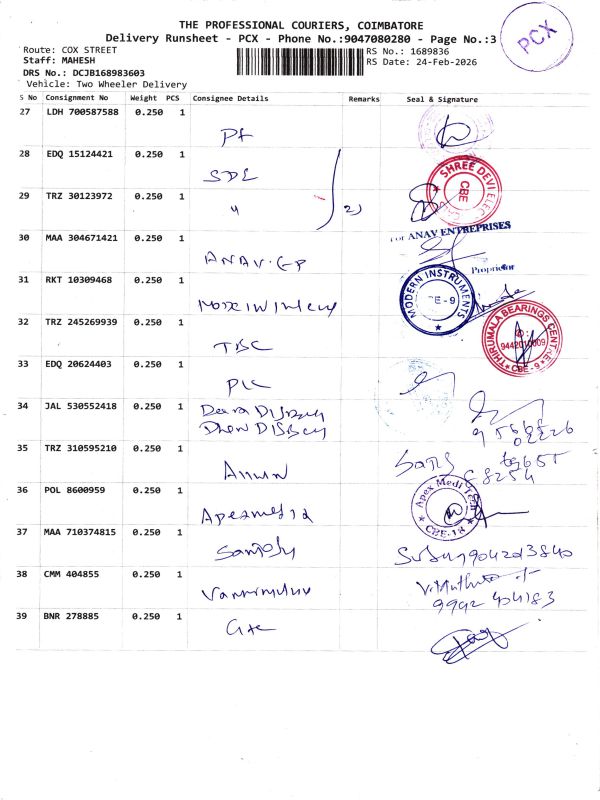 THE PROFESSIONAL COURIERS, COIMBATORE
Delivery Runsheet - PCX - Phone No.:9047080280 - Page No.:3
PCX
Route: COX STREET
RS No.: 1689836
Staff: MAHESH
RS Date: 24-Feb-2026
DRS No.: DCJB168983603
Vehicle: Two Wheeler Delivery
S No Consignment No Weight PCS Consignee Details Remarks Seal & Signature
27 LDH 700587588 0.250 1
28 EDQ 15124421 0.250 1
SDE
SHREE DEVI ELEC
CBE
29 TRZ 30123972 0.250 1
2)
30 MAA 304671421 0.250 1
For ANAV ENTREPRISES
ANAV.EP
Proprietor
31 RKT 10309468 0.250 1
MODERN INSTRUMENTS
CBE-9
32 TRZ 245269939 0.250 1
TBC
THIRUMALA BEARINGS CENTRE
CBE-9
33 EDQ 20624403 0.250 1
PLC
34 JAL 530552418 0.250 1
35 TRZ 310595210 0.250 1
36 POL 8600959 0.250 1
Apex Medi Tech
CBE-18
37 MAA 710374815 0.250 1
Santosh
38 CMM 404855 0.250 1
39 BNR 278885 0.250 1